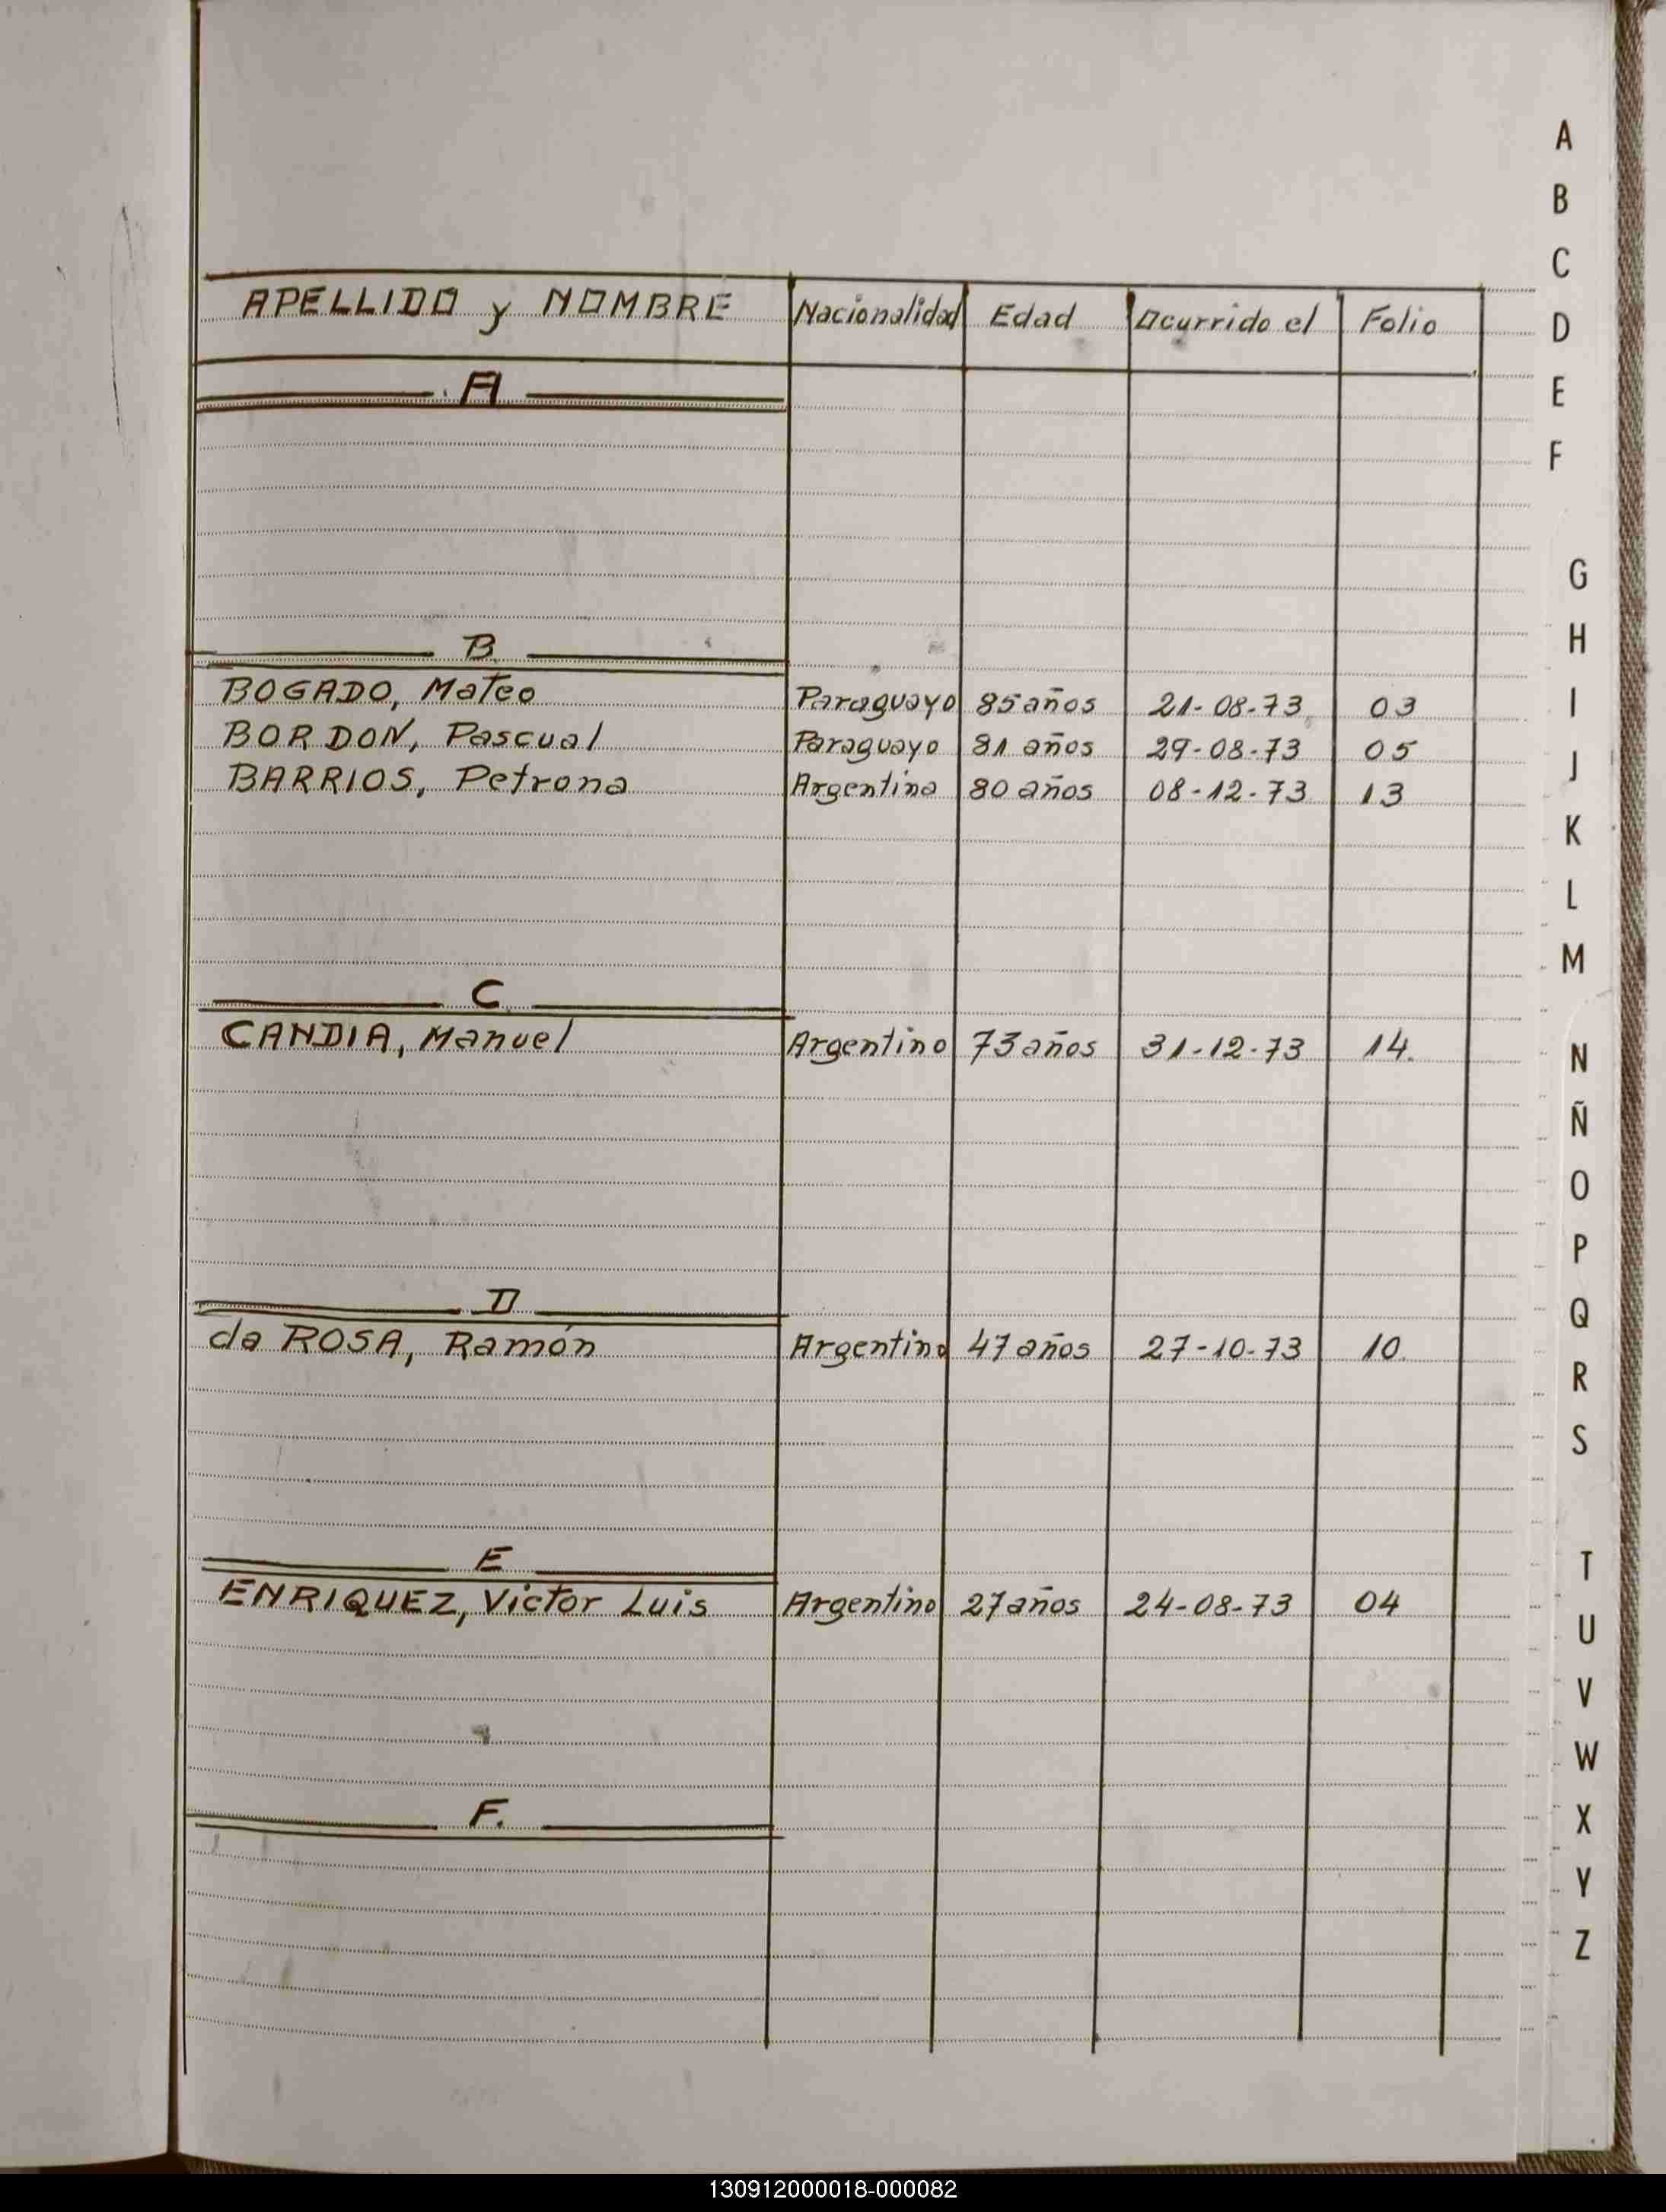 APELLIDO y NOMBRE Nacionalidad Edad Ocurrido el Folio
A
B
BOGADO, Mateo Paraguayo 85 años 21-08-73 03
BORDON, Pascual Paraguayo 81 años 29-08-73 05
BARRIOS, Petrona Argentina 80 años 08-12-73 13
C
CANDIA, Manuel Argentino 73 años 31-12-73 14.
D
da ROSA, Ramón Argentino 47 años 27-10-73 10.
E
ENRIQUEZ, Victor Luis Argentino 27 años 24-08-73 04
F.
A
B
C
D
E
F
G
H
I
J
K
L
M
N
Ñ
O
P
Q
R
S
T
U
V
W
X
Y
Z
130912000018-000082